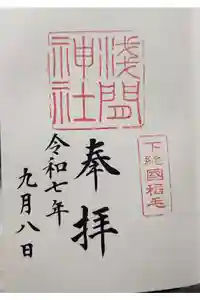 淺間神社
下総國稲毛
奉拝
令和七年
九月八日